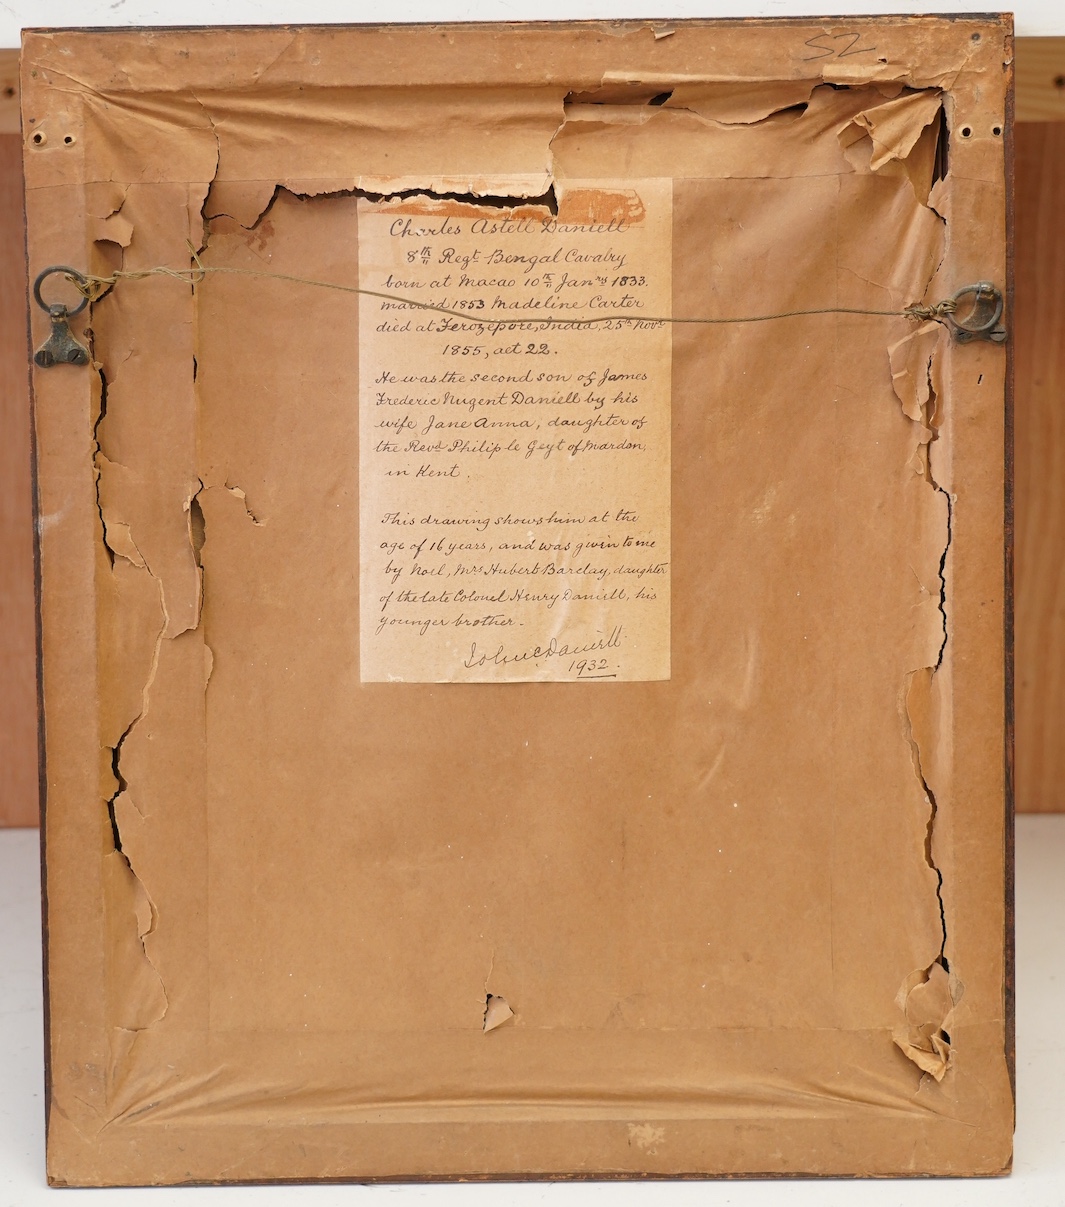 52
Charles Astell Daniell
8th Regt Bengal Cavalry
born at Macao 10th Janry 1833.
married 1853 Madeline Carter
died at Ferozepore, India, 25th Novr
1855, aet 22.
He was the second son of James
Frederic Nugent Daniell by his
wife Jane Anna, daughter of
the Revd Philip le Geyt of Mardon,
in Kent.
This drawing shows him at the
age of 16 years, and was given to me
by Noel, Mrs Hubert Barclay, daughter
of the late Colonel Henry Daniell, his
younger brother.
John C Daniell
1932.